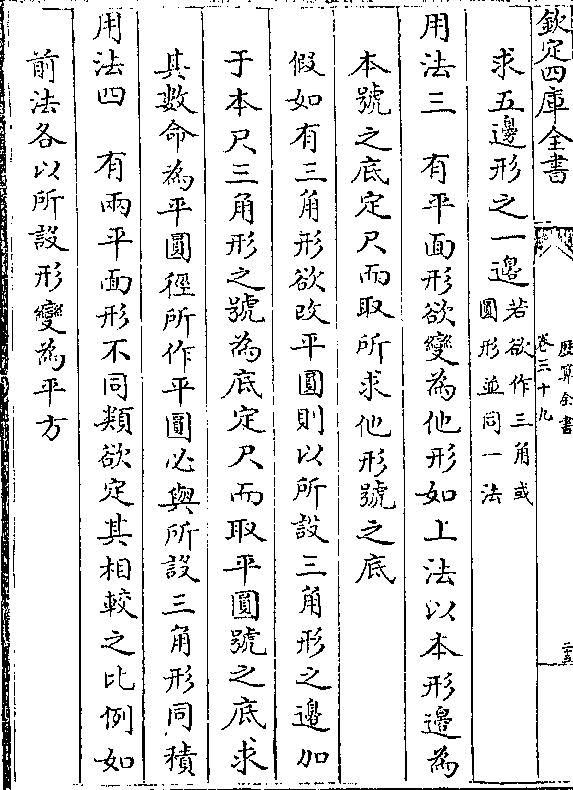 欽定四庫全書
歷算全書
卷三十九
二十五
求五邊形之一邊若欲作三角或
圓形並同一法
用法三　有平面形欲變為他形如上法以本形邊為
本號之底定尺而取所求他形號之底
假如有三角形欲改平圓則以所設三角形之邊加
于本尺三角形之號為底定尺而取平圓號之底求
其數命為平圓徑所作平圓必與所設三角形同積
用法四　有兩平面形不同類欲定其相較之比例如
前法各以所設形變為平方